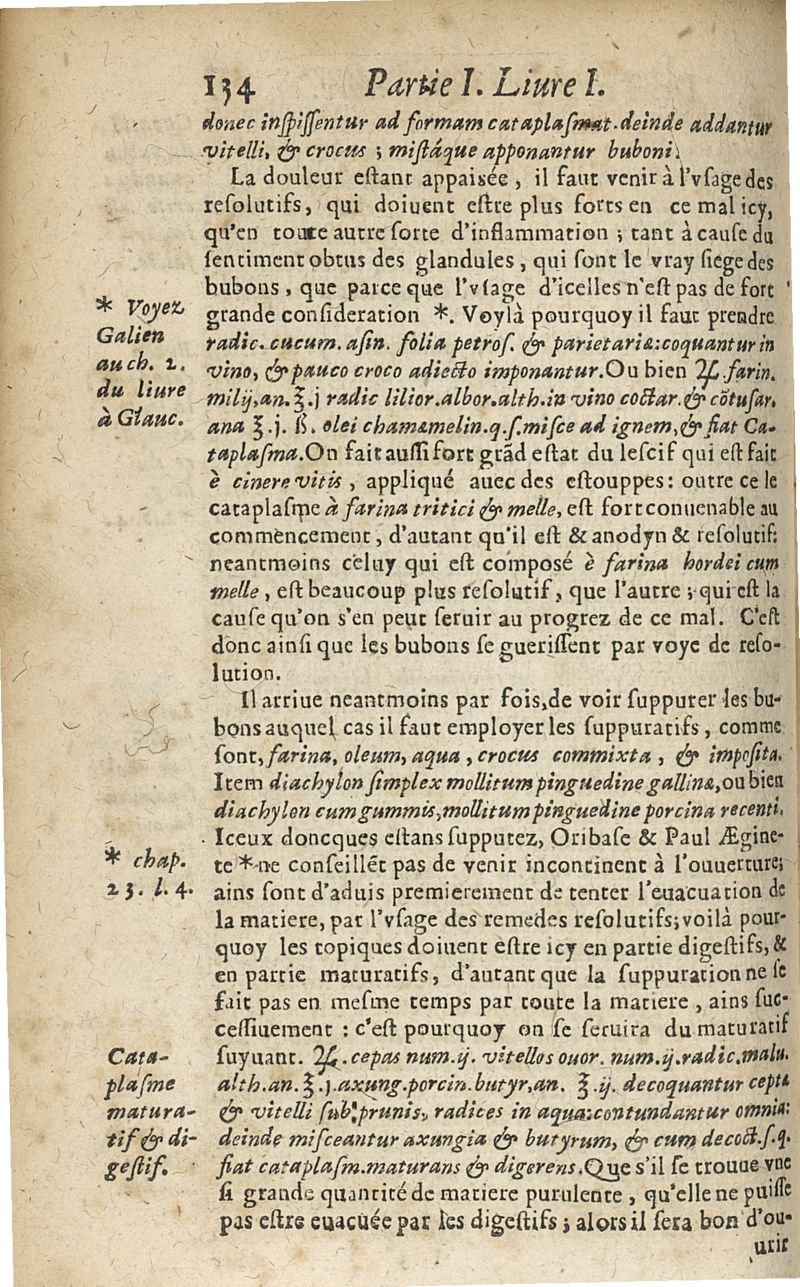 134 Partie I. Liure I.
donec inspissentur ad formam cataplasmat. deinde addantur
vitelli, & crocus ; mistáque apponantur buboni.
La douleur estant appaisée, il faut venir à l'vsage des
resolutifs, qui doiuent estre plus forts en ce mal icy,
qu'en toute autre sorte d'inflammation ; tant à cause du
sentiment obtus des glandules, qui sont le vray siege des
bubons, que parce que l'vsage d'icelles n'est pas de fort
grande consideration *. Voylà pourquoy il faut prendre
* Voyez
Galien
au ch. 2.
du liure
à Glauc.
radic. cucum. asin. folia petros. & parietariæ: coquantur in
vino, & pauco croco adiecto imponantur. Ou bien ℞. farin.
milij, an. ℥. j radic lilior. albor. alth. in vino coctar. & cōtusar.
ana ℥. j. ß. olei chamæmelin. q. s. misce ad ignem, & fiat Ca-
taplasma. On fait aussi fort grād estat du lescif qui est fait
è cinere vitis, appliqué auec des estouppes: outre ce le
cataplasme à farina tritici & melle, est fort conuenable au
commencement, d'autant qu'il est & anodyn & resolutif:
neantmoins celuy qui est composé è farina hordei cum
melle, est beaucoup plus resolutif, que l'autre ; qui est la
cause qu'on s'en peut seruir au progrez de ce mal. C'est
donc ainsi que les bubons se guerissent par voye de reso-
lution.
Il arriue neantmoins par fois, de voir suppurer les bu-
bons auquel cas il faut employer les suppuratifs, comme
sont, farina, oleum, aqua, crocus commixta, & imposita.
Item diachylon simplex mollitum pinguedine gallinæ, ou bien
diachylon cum gummis, mollitum pinguedine porcina recenti.
Iceux doncques estans suppurez, Oribase & Paul Ægine-
te * ne conseillēt pas de venir incontinent à l'ouuerture;
* chap.
23. l. 4.
ains sont d'aduis premierement de tenter l'euacuation de
la matiere, par l'vsage des remedes resolutifs; voilà pour-
quoy les topiques doiuent estre icy en partie digestifs, &
en partie maturatifs, d'autant que la suppuration ne se
fait pas en mesme temps par toute la matiere, ains suc-
cessiuement : c'est pourquoy on se seruira du maturatif
suyuant. ℞. cepas num. ij. vitellos ouor. num. ij. radic. malu.
Cata-
plasme
matura-
tif & di-
gestif.
alth. an. ℥. j. axung. porcin. butyr, an. ℥. ij. decoquantur cepæ
& vitelli sub prunis, radices in aqua: contundantur omnia:
deinde misceantur axungia & butyrum, & cum decoct. s. q.
fiat cataplasm. maturans & digerens. Que s'il se trouue vne
si grande quantité de matiere purulente, qu'elle ne puisse
pas estre euacuée par les digestifs ; alors il sera bon d'ou-
urir